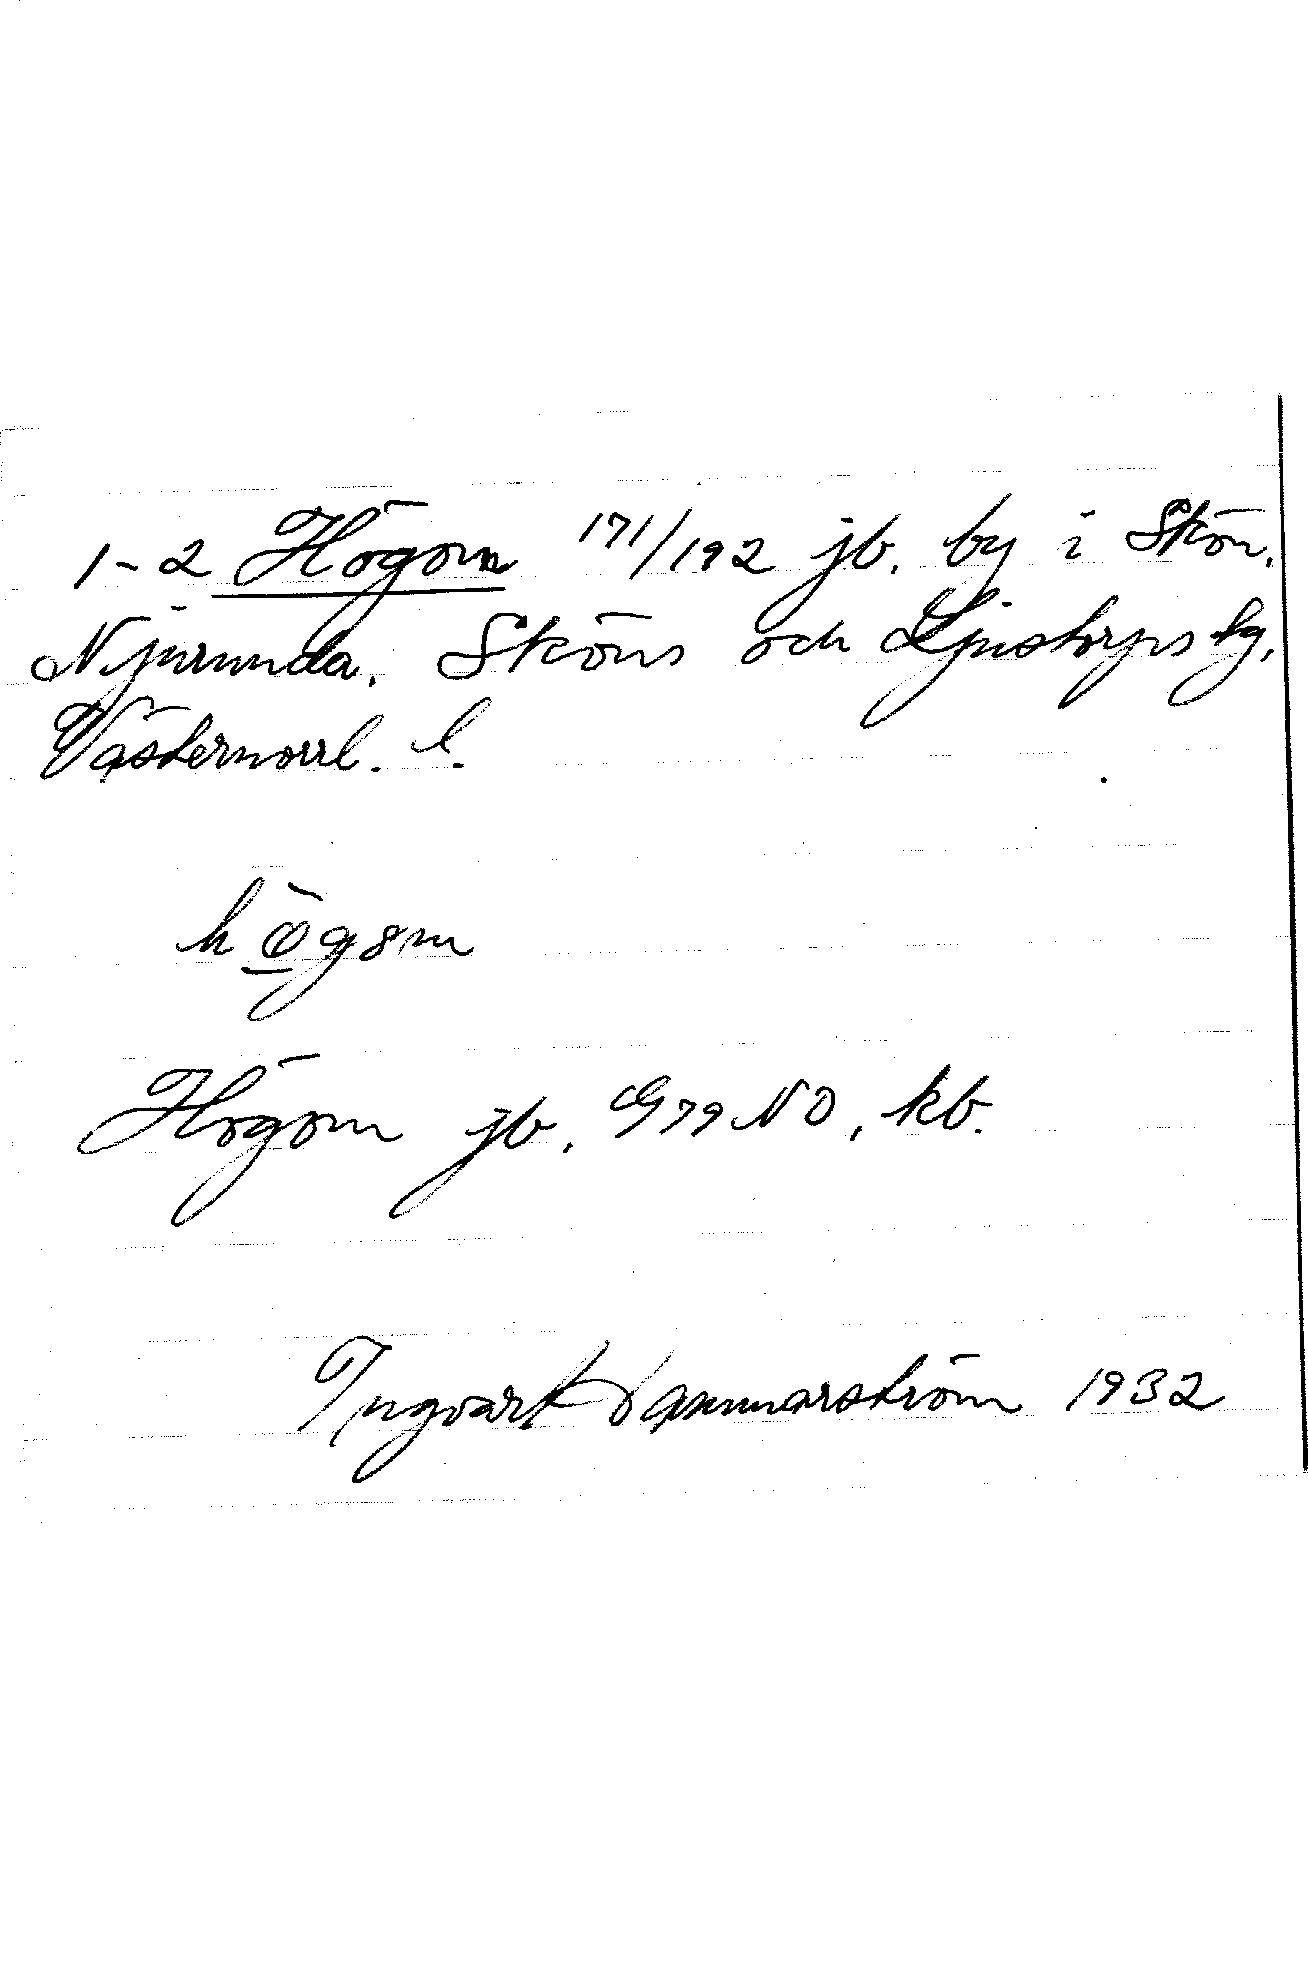 1-2 Högom 171/192 jb. by i Skön.
Njurunda. Sköns och Ljustorps tg,
Västernorrl. l.
högom
Högom jb. G79NO, kb.
Ingvart Dannarström 1932